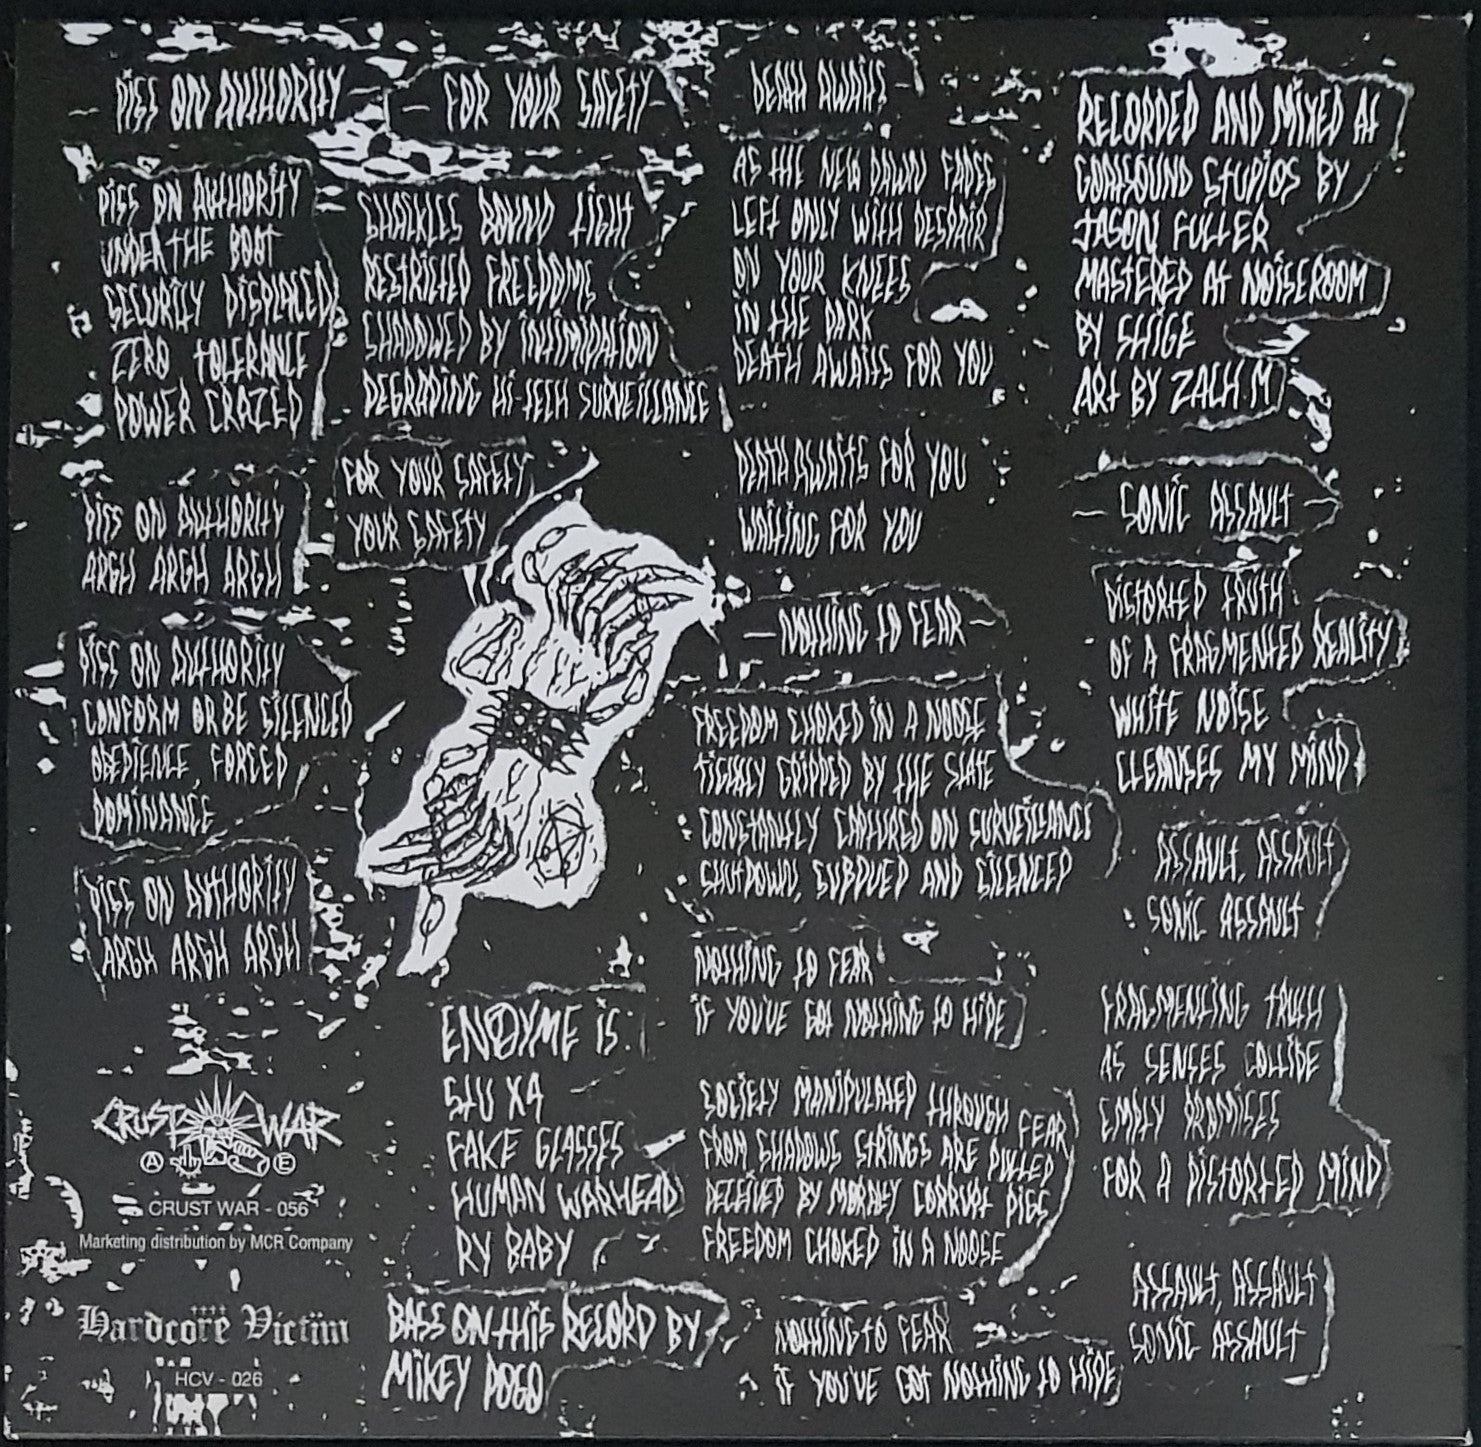 - PISS ON AUTHORITY -
PISS ON AUTHORITY
UNDER THE BOOT
SECURITY DISPLACED
ZERO TOLERANCE
POWER CRAZED
PISS ON AUTHORITY
ARGH ARGH ARGH
PISS ON AUTHORITY
CONFORM OR BE SILENCED
OBEDIENCE, FORCED
DOMINANCE
PISS ON AUTHORITY
ARGH ARGH ARGH
CRUST WAR
A E
CRUST WAR - 056
Marketing distribution by MCR Company
Hardcore Victim
HCV - 026
- FOR YOUR SAFETY -
SHACKLES BOUND TIGHT
RESTRICTED FREEDOMS
SHADOWED BY INTIMIDATION
DEGRADING HI-TECH SURVEILLANCE
FOR YOUR SAFETY
YOUR SAFETY
ENZYME IS:
STU XA
FAKE GLASSES
HUMAN WARHEAD
RY BABY
BASS ON THIS RECORD BY
MIKEY POGO
DEATH AWAITS -
AS THE NEW DAWN FADES
LEFT ONLY WITH DESPAIR
ON YOUR KNEES
IN THE DARK
DEATH AWAITS FOR YOU
DEATH AWAITS FOR YOU
WAITING FOR YOU
- NOTHING TO FEAR -
FREEDOM CHOKED IN A NOOSE
TIGHTLY GRIPPED BY THE STATE
CONSTANTLY CAPTURED ON SURVEILLANCE
SHUTDOWN, SUBDUED AND SILENCED
NOTHING TO FEAR
IF YOU'VE GOT NOTHING TO HIDE
SOCIETY MANIPULATED THROUGH FEAR
FROM SHADOWS STRINGS ARE PULLED
DECEIVED BY MORALLY CORRUPT PIGS
FREEDOM CHOKED IN A NOOSE
NOTHING TO FEAR
IF YOU'VE GOT NOTHING TO HIDE
RECORDED AND MIXED AT
GOATSOUND STUDIOS BY
JASON FULLER
MASTERED AT NOISEROOM
BY SHIGE
ART BY ZACH M
- SONIC ASSAULT -
DISTORTED TRUTH
OF A FRAGMENTED REALITY
WHITE NOISE
CLEANSES MY MIND
ASSAULT, ASSAULT
SONIC ASSAULT
FRAGMENTING TRUTH
AS SENSES COLLIDE
EMPTY PROMISES
FOR A DISTORTED MIND
ASSAULT, ASSAULT
SONIC ASSAULT